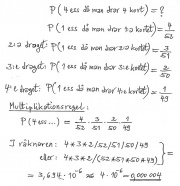 P(4 ess då man drar 4 kort) = ?
P(1 ess då man drar 1:a kortet) = 4/52
2:a draget: P(1 ess då man drar 2:a kortet) = 3/51
3:e draget: P(1 ess då man drar 3:e kortet) = 2/50
4:e draget: P(1 ess då man drar 4:e kortet) = 1/49
Multiplikationsregel:
P(4 ess...) = 4/52 · 3/51 · 2/50 · 1/49
I räknaren: 4*3*2/52/51/50/49
eller: 4*3*2/(52*51*50*49)
= 3,694 · 10⁻⁶ ≈ 4 · 10⁻⁶ = 0,000004